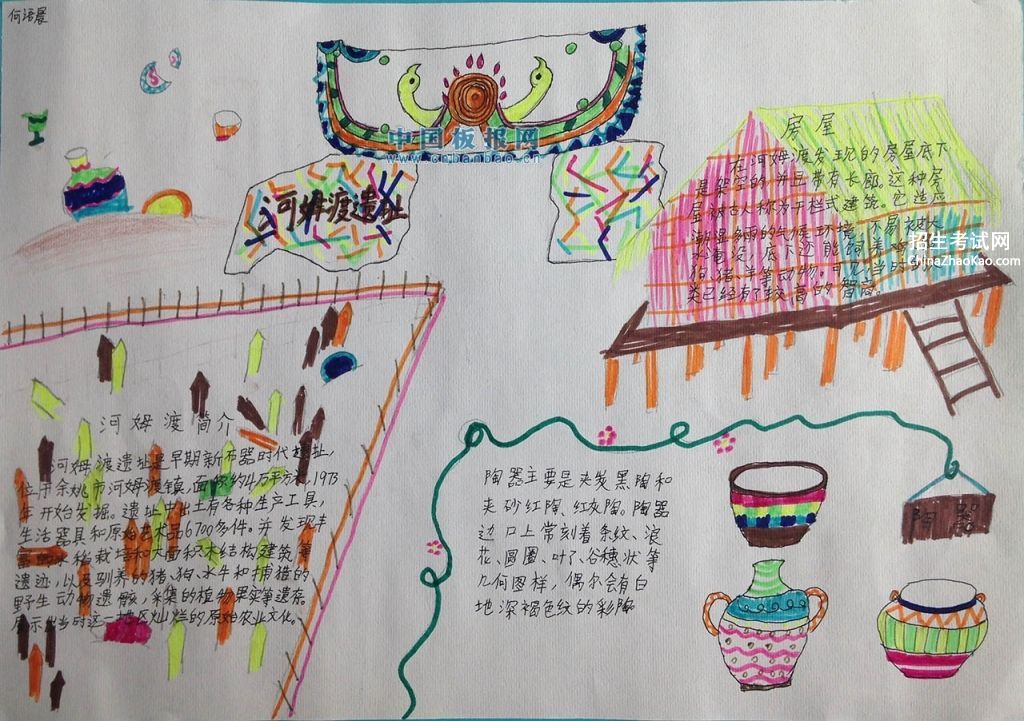 何语晨
中国板报网
www.cnbanbao.cn
河姆渡遗址
房屋
在河姆渡发现的房屋底下
是架空的,并且带有长廊。这种房
屋被古人称为干栏式建筑。它适应
潮湿多雨的气候环境,不易被大
水淹没,底下还能饲养
狗、猪、羊等动物。可见当时的人
类已经有了较高的智慧。
招生考试网
ChinaZhaoKao.com
河姆渡简介
河姆渡遗址是早期新石器时代遗址,
位于余姚市河姆渡镇,面积约4万平方米,1973
年开始发掘。遗址中出土有各种生产工具,
生活器具和原始艺术品6700多件。并发现丰
富的水稻栽培和大面积木结构建筑等
遗迹,以及驯养的猪、狗、水牛和捕猎的
野生动物遗骸,采集的植物果实等遗存。
展示出当时这一地区灿烂的原始农业文化。
陶器主要是夹炭黑陶和
夹砂红陶、红灰陶。陶器
边口上常刻着条纹、浪
花、圆圈、叶了、谷穗状等
几何图样,偶尔会有白
地深褐色纹的彩陶
陶器